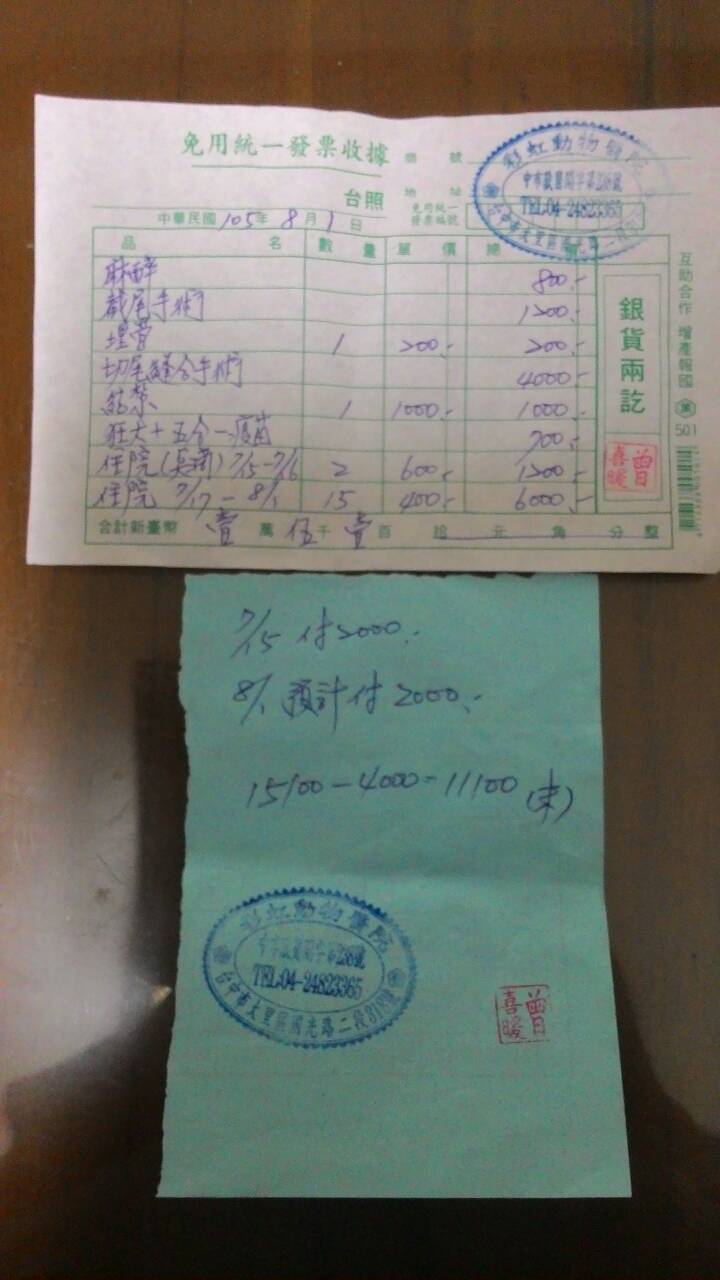 免用統一發票收據
商號
彩虹動物醫院
台照 地址
中市獸醫開字第238號
免用統一發票編號
TEL:04-24823365
中華民國105年8月1日
品名 數量 單價 總價
麻醉 800.-
截尾手術 1200.-
埋管 1 200.- 200.-
切尾縫合手術 4000.-
結紮 1 1000.- 1000.-
狂犬+五合一疫苗 700.-
住院 7/15-7/16 2 600.- 1200.-
住院 7/17-8/1 15 400.- 6000.-
合計新臺幣 壹萬伍千壹百拾元角分整
銀貨兩訖
曾喜暖
互助合作 增產報國
萬
501
7/15 付2000.-
8/1 預計付2000.-
15100-4000=11100 (未)
彩虹動物醫院
中市獸醫開字第238號
TEL:04-24823365
台中市大里區國光路二段319號
曾喜暖